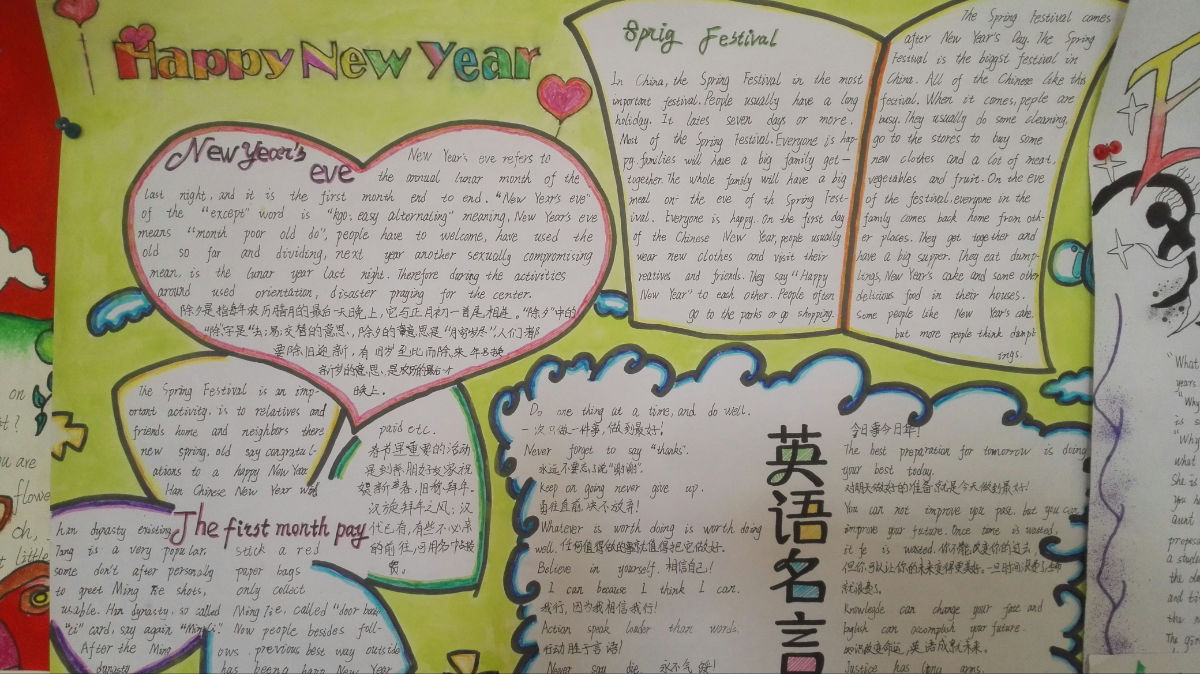 Happy New Year
New Year's
eve
New Year's eve refers to
the annual lunar month of the
last night, and it is the first month end to end. "New Year's eve"
of the "except" word is "kgo; easy alternating" meaning, New Year's eve
means "month poor old do", people have to welcome, have used the
old so far and dividing, next year another sexually compromising
mean, is the lunar year last night. Therefore during the activities
around used orientation, disaster praying for the center.
除夕是指每年农历腊月的最后一天晚上,它与正月初一首尾相连。"除夕"中的
"除"字是"去;易;交替"的意思,除夕的意思是"月穷岁尽"人们都
要除旧迎新,有旧岁至此而除,来年另换
新岁的意思、是农历的最后一
晚上。
Sprig Festival
In China, the Spring Festival in the most
important festival. People usually have a long
holiday. It lates seven days or more.
Most of the Spring Festival. Everyone is hap-
py. families will have a big family get-
together. The whole family will have a big
meal on the eve of th Spring Fest-
ival. Everyone is happy. On the first day
of the Chinese New Year, people usually
wear new clothes and visit their
reatives and friends. They say "Happy
New Year" to each other. People often
go to the parks or go shopping.
The Spring Festival comes
after New Year's Day. The Spring
Festival is the biggest festival in
China. All of the Chinese like this
festival. When it comes, peple are
busy. They usually do some cleaning,
go to the stores to buy some
new clothes and a lot of meat,
vegetables and fruit. On the eve
of the festival, everyone in the
family comes back home from oth-
er places. They get together and
have a big supper. They eat dump-
lings, New Year's cake and some other
delicious food in their houses.
Some people like New Year's cake.
but more people think dumpl
ings.
The Spring Festival is an imp-
ortant activity, is to relatives and
friends home and neighbors there
new spring, old say congratul-
ations to a happy New Year
Han Chinese New Year
paid etc.
春节里重要的活动
是到亲朋好友家祝
贺新春,旧称拜年。
汉族拜年之风;汉
代已有,有些不必亲
的前往,可用名帖投
贺。
The first month pay
han dynasty existing
Tang is a very popular.
some don't after personally
to greet Ming tie shots,
usable. Han dynasty, so called
card, say again
After the Ming
dynasty
stick a red
paper bags
only collect
Ming tie, called "door
Now people besides foll-
ows previous best way outside
has been happ New Year
Do one thing at a time, and do well.
一次只做一件事,做到最好!
Never forget to say "thanks".
永远不要忘了说"谢谢".
keep on going never give up.
勇往直前,决不放弃!
Whatever is worth doing is worth doing
well. 任何值得做的事就值得把它做好.
Believe in yourself. 相信自己!
I can because I think I can.
我行,因为我相信我行!
Action speak louder than words.
行动胜于言语!
Never say die. 永不气馁!
英语名言
今日事今日毕!
The best preparation for tomorrow is doing
your best today.
对明天做好的准备就是今天做到最好!
You can not improve you past. but you can
improve your future. Once time is wasted,
it fe is wasted. 你不能改变你的过去,
但你可以让你的未来变得更美好。一旦时间浪费了,生命
就浪费了。
Knowlegde can change your fate and
English can accomplish your future.
知识改变命运,英语成就未来。
Justice has long arms.
on
t?
ou are
flowe
ch,
t little
"What
years
"Why
is s
"Why
what
She is
you
aunt
propose
a stude
the
and ti
the
The gir